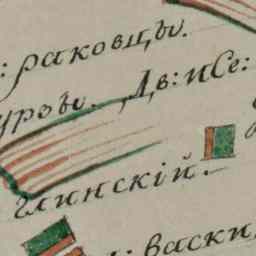 : раковцы.
уровы. Дв: и Се:
глинскій.
: васки